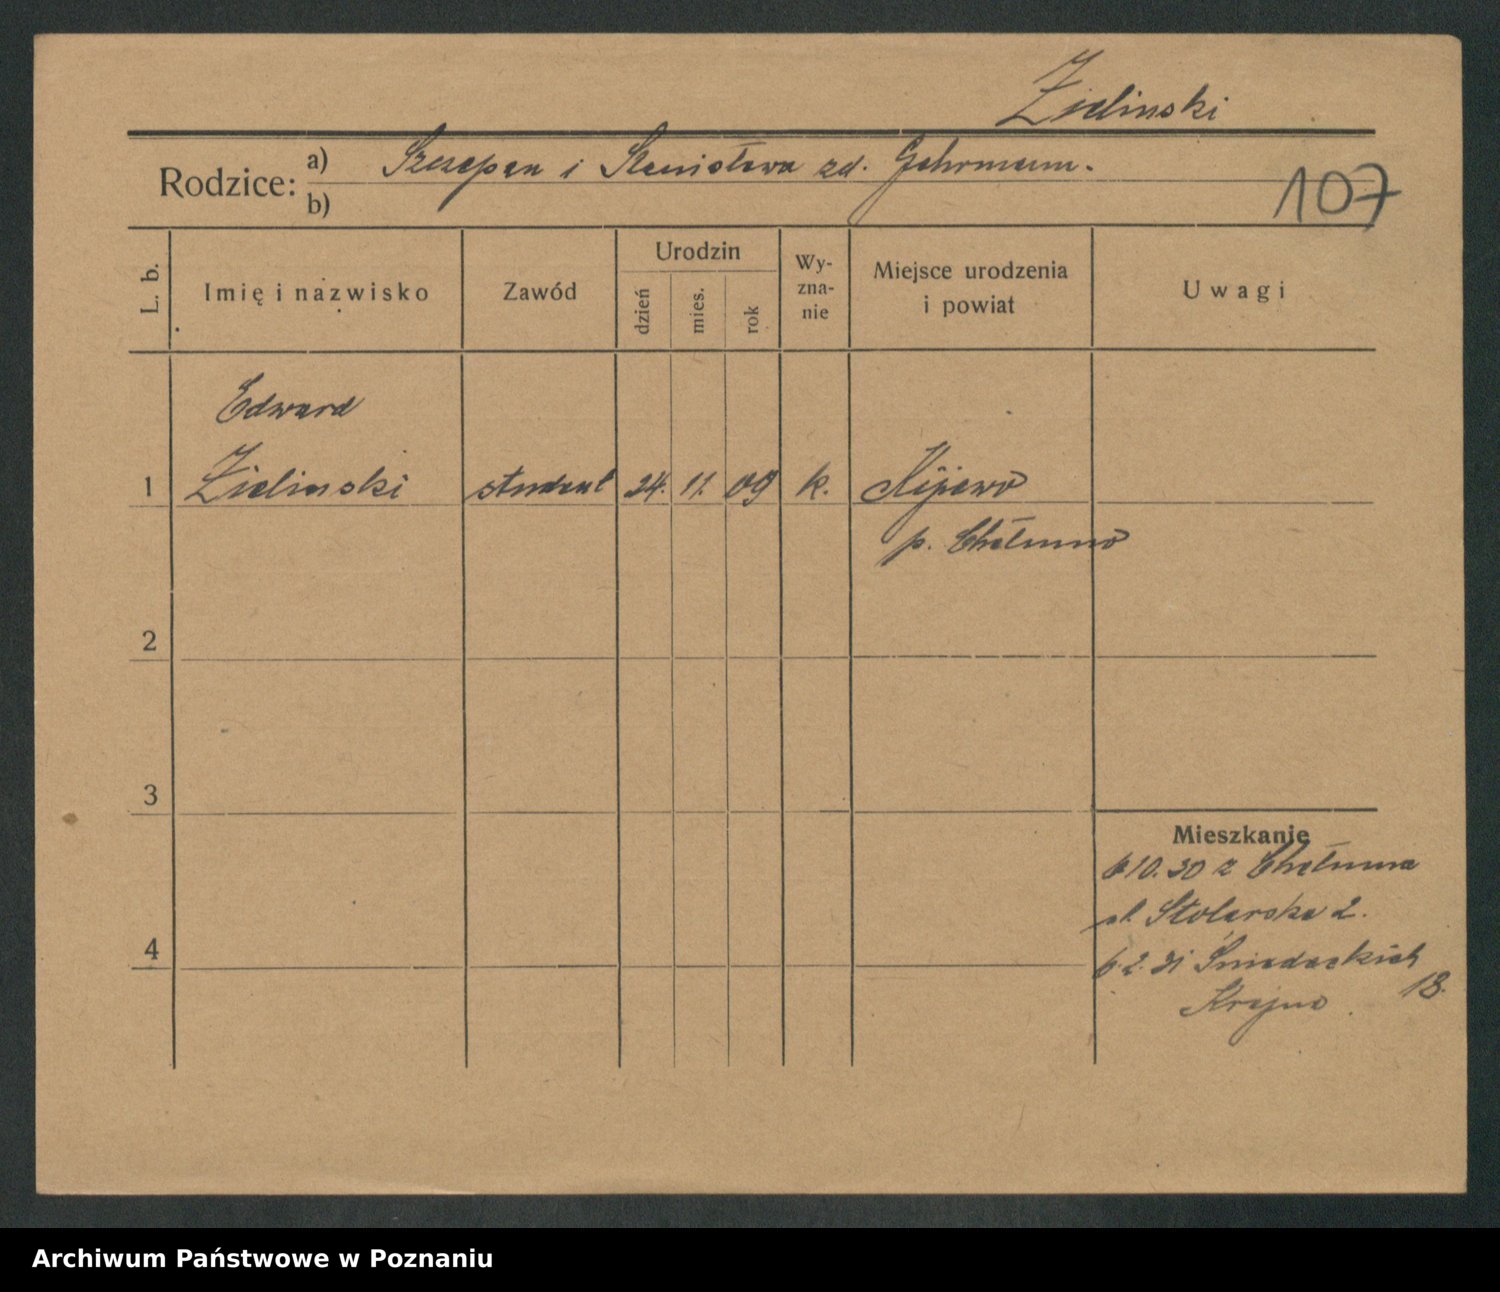 Zielinski
Rodzice: a) Szczepan i Stanisława zd. Gehrmann.
b)
107
L. b. Imię i nazwisko Zawód Urodzin dzień mies. rok Wy-zna-nie Miejsce urodzenia i powiat Uwagi
Edward
1 Zielinski student 24. 11. 09 k. Kijewo
p. Chełmno
2
3
Mieszkanie
6 10. 30 z Chełmna
ul. Stolarska 2.
4
6. 2. 31 Śniadeckich
18.
Archiwum Państwowe w Poznaniu